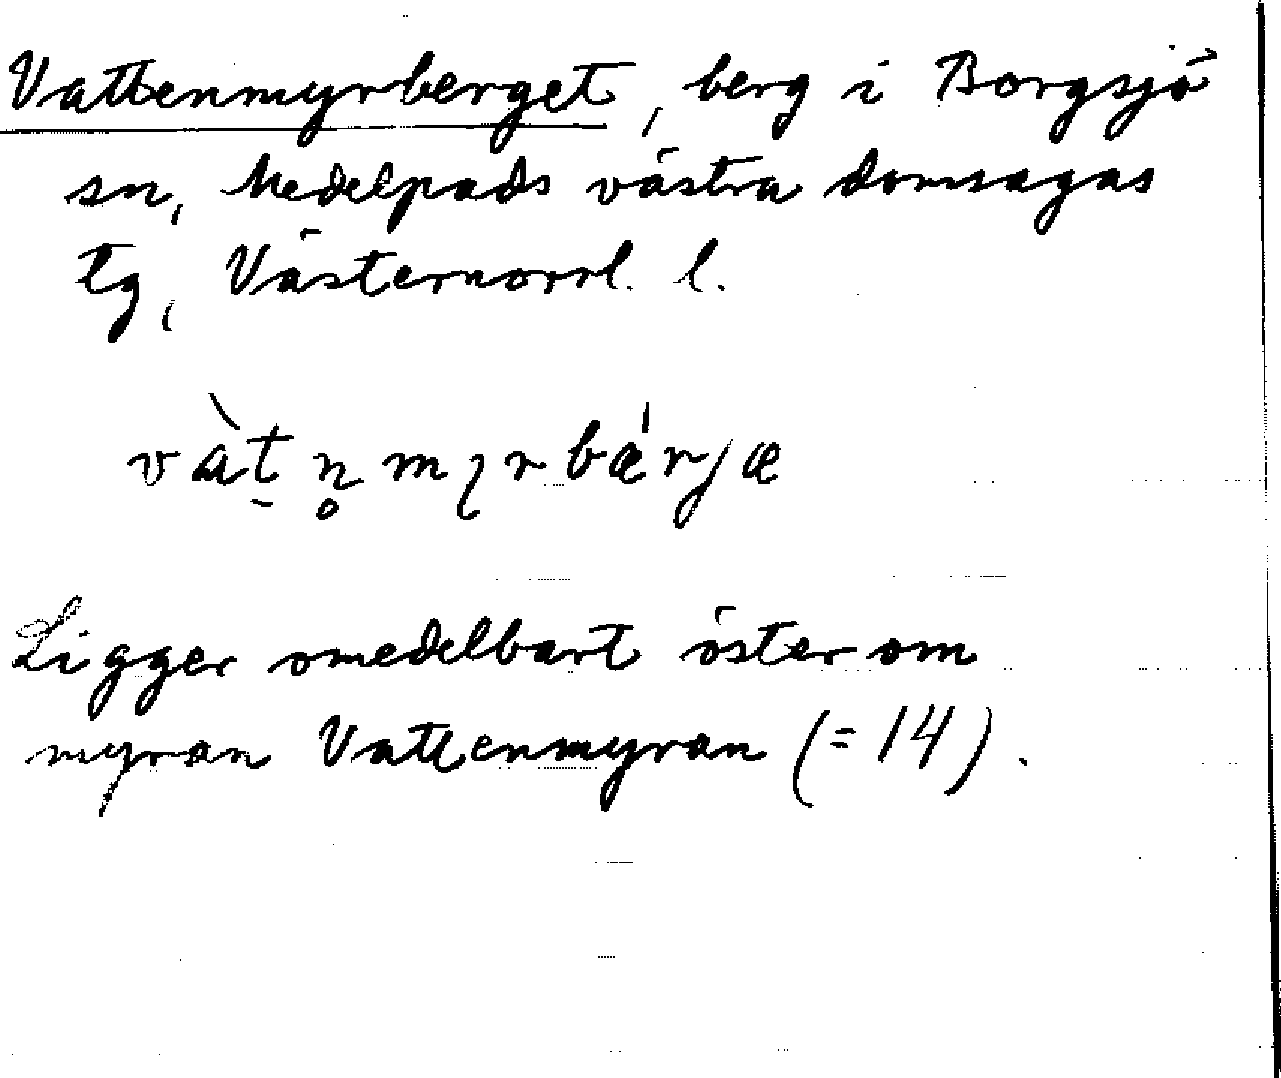 Vattenmyrberget, berg i Borgsjö
sn, Medelpads västra domsagas
tg, Västernorrl. l.
vàt̠n̥mʅrbǽrjæ
Ligger omedelbart öster om
myran Vattenmyran (=14).